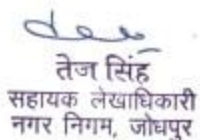 तेज सिंह
सहायक लेखाधिकारी
नगर निगम, जोधपुर